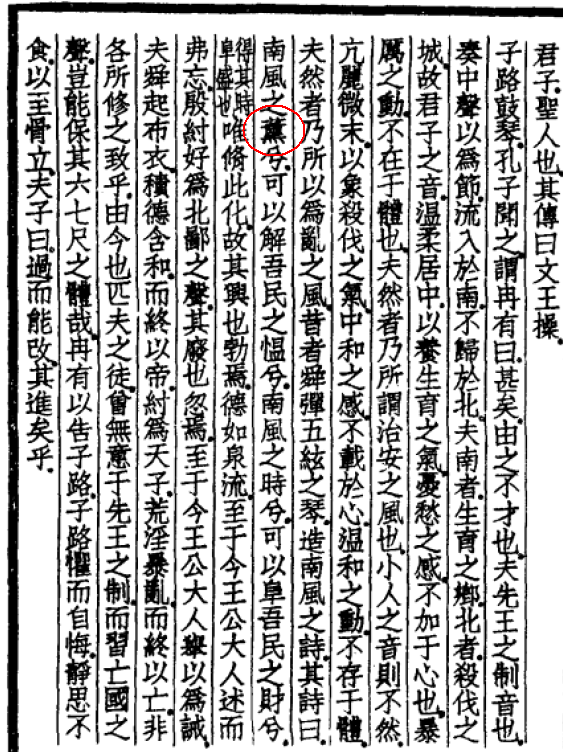 君子。聖人也。其傳曰文王操。
子路鼓琴。孔子聞之。謂冉有曰。甚矣。由之不才也。夫先王之制音也。
奏中聲以爲節。流入於南。不歸於北。夫南者。生育之鄉。北者。殺伐之
城。故君子之音。温柔居中。以養生育之氣。憂愁之感。不加于心也。暴
厲之動。不在于體也。夫然者。乃所謂治安之風也。小人之音則不然。
亢麗微末。以象殺伐之氣。中和之感。不載於心。温和之動。不存于體。
夫然者。乃所以爲亂之風。昔者舜彈五絃之琴。造南風之詩。其詩曰
南風之薰兮。可以解吾民之愠兮。南風之時兮。可以阜吾民之財兮。
得其時阜盛也。唯脩此化。故其興也勃焉。德如泉流。至于今王公大人述而
弗忘。殷紂好爲北鄙之聲。其廢也忽焉。至于今王公大人舉以爲誡。
夫舜起布衣。積德含和。而終以帝。紂爲天子。荒淫暴亂。而終以亡。非
各所修之致乎。由今也匹夫之徒。曾無意于先王之制。而習亡國之
聲。豈能保其六七尺之體哉。冉有以告子路。子路懼而自悔。靜思不
食。以至骨立。夫子曰。過而能改。其進矣乎。